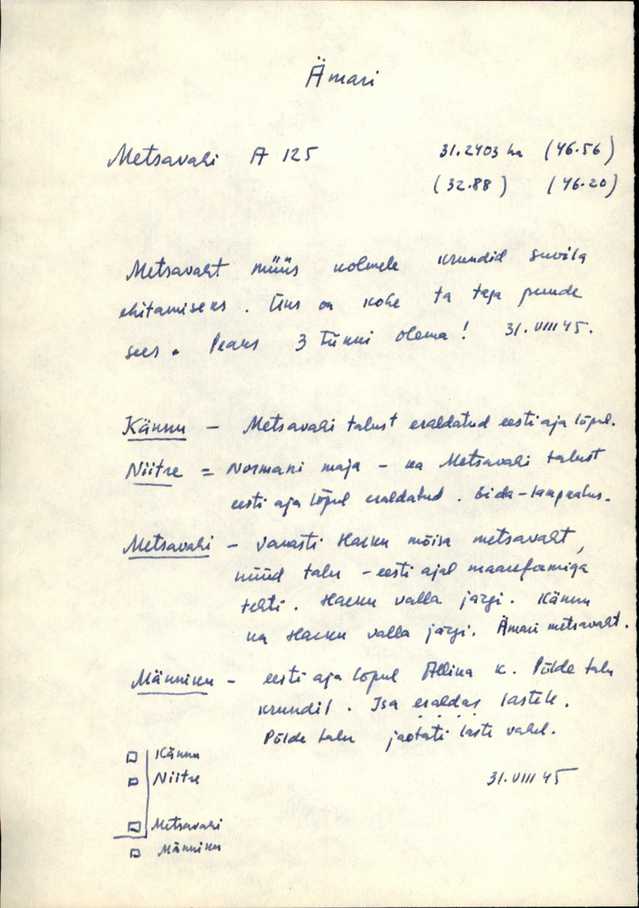 Ämari
Metsavahi A 125 31.2403 ha (46.56)
(32.88) (46.20)
Metsavaht müüs kolmele krundid suvila
ehitamiseks. Üks on kohe ta teja puude
sees. Peaks 3 tünni olema! 31.VIII 45.
Kännu – Metsavahi talust eraldatud eesti aja lõpul.
Niitre = Normani maja – ka Metsavahi talust
eesti aja lõpul eraldatud.
Metsavahi – vanasti Harku mõisa metsavaht,
nüüd talu – eesti ajal maareformiga
tehti. Harku valla järgi. Kännu
ka Harku valla järgi. Ämari metsavaht.
Männiku – eesti aja lõpul Allika k. Põlde talu
krundil. Isa eraldas lastele.
Põlde talu jaotati laste vahel.
Kännu
Niitre 31.VIII 45
Metsavahi
Männiku